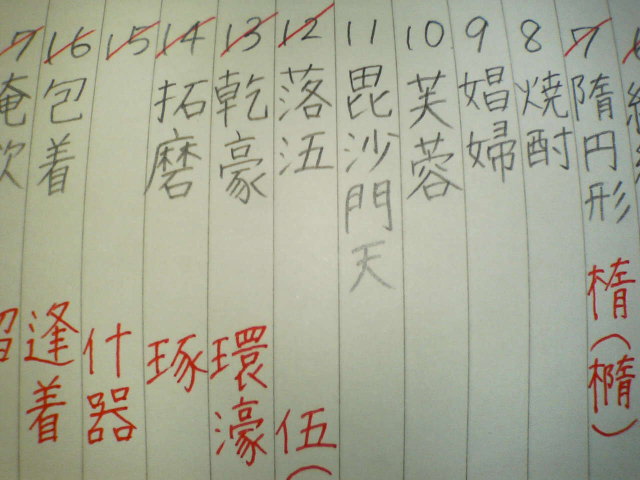 7 隋円形 楕(橢)
8 焼酎
9 娼婦
10 芙蓉
11 毘沙門天
12 落沍 伍(
13 乾豪 環濠
14 拓磨 琢
15 什器
16 包着 逢着